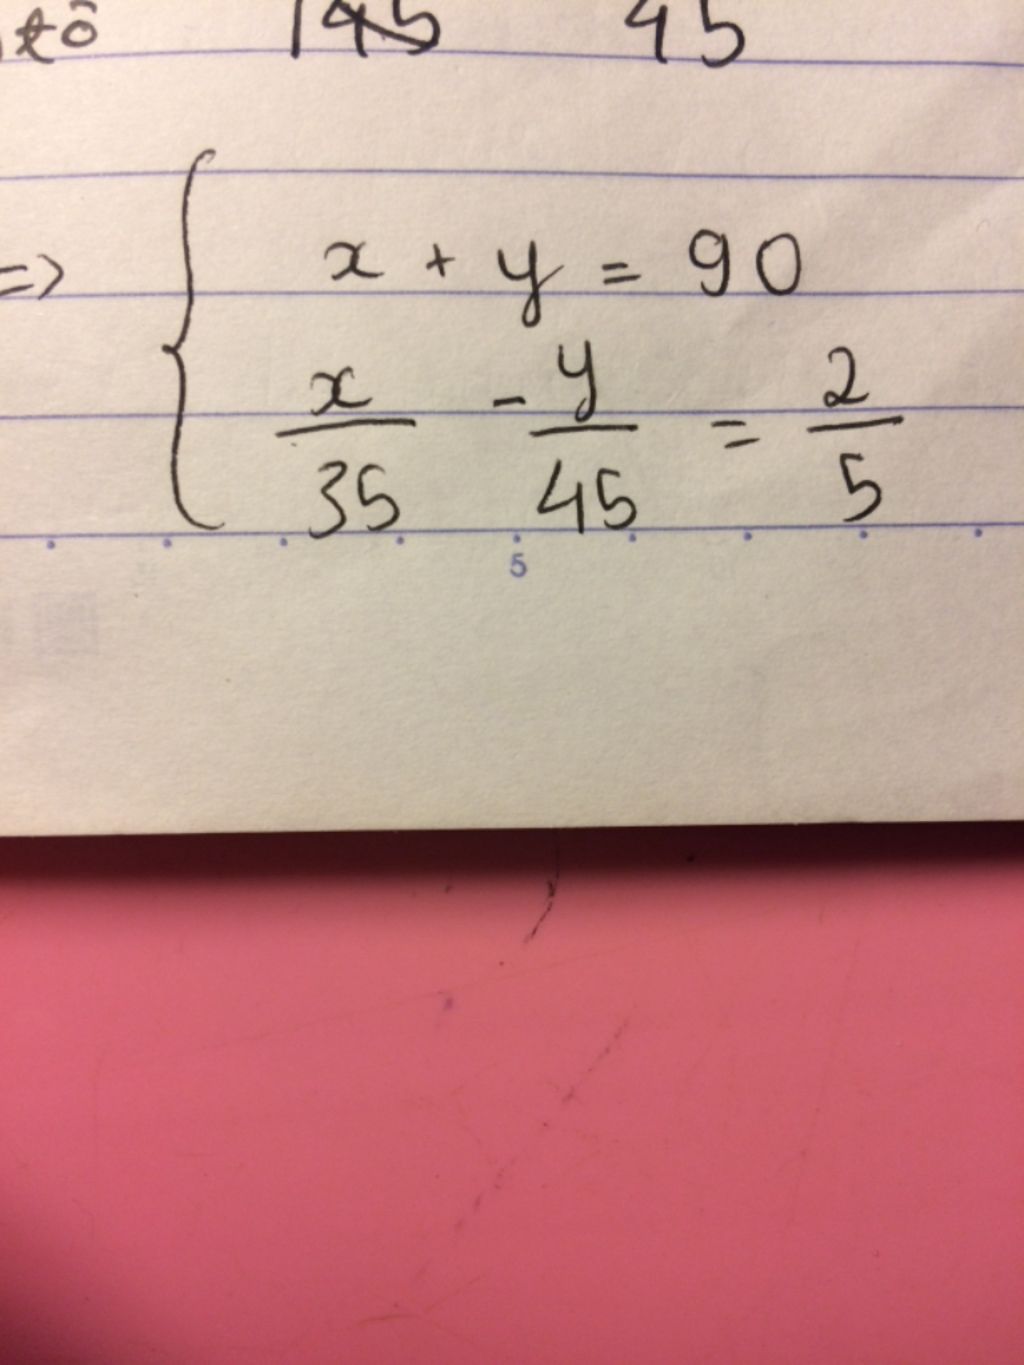 tô 145 45
=> { x + y = 90
x/35 - y/45 = 2/5
5